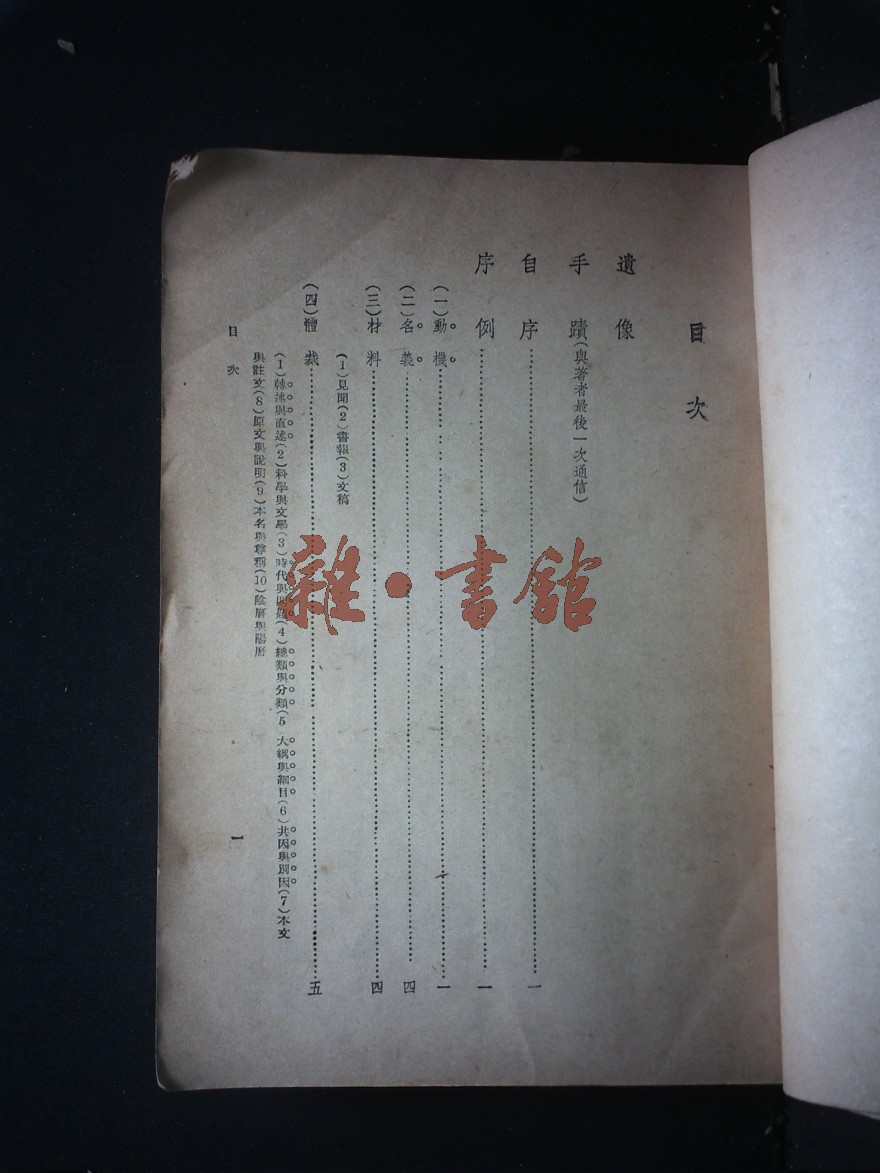 目次
遺像
手蹟(與著者最後一次通信)
自序……一
序例……一
(一)動機……一
(二)名義……四
(三)材料……四
(1)見聞(2)書報(3)文稿
(四)體裁……五
(1)轉述與直述(2)科學與文學(3)時代與問題(4)總類與分類(5 大綱與細目(6)共因與別因(7)本文
與註文(8)原文與說明(9)本名與尊稱(10)陰曆與陽曆
目次 一
雜·書館